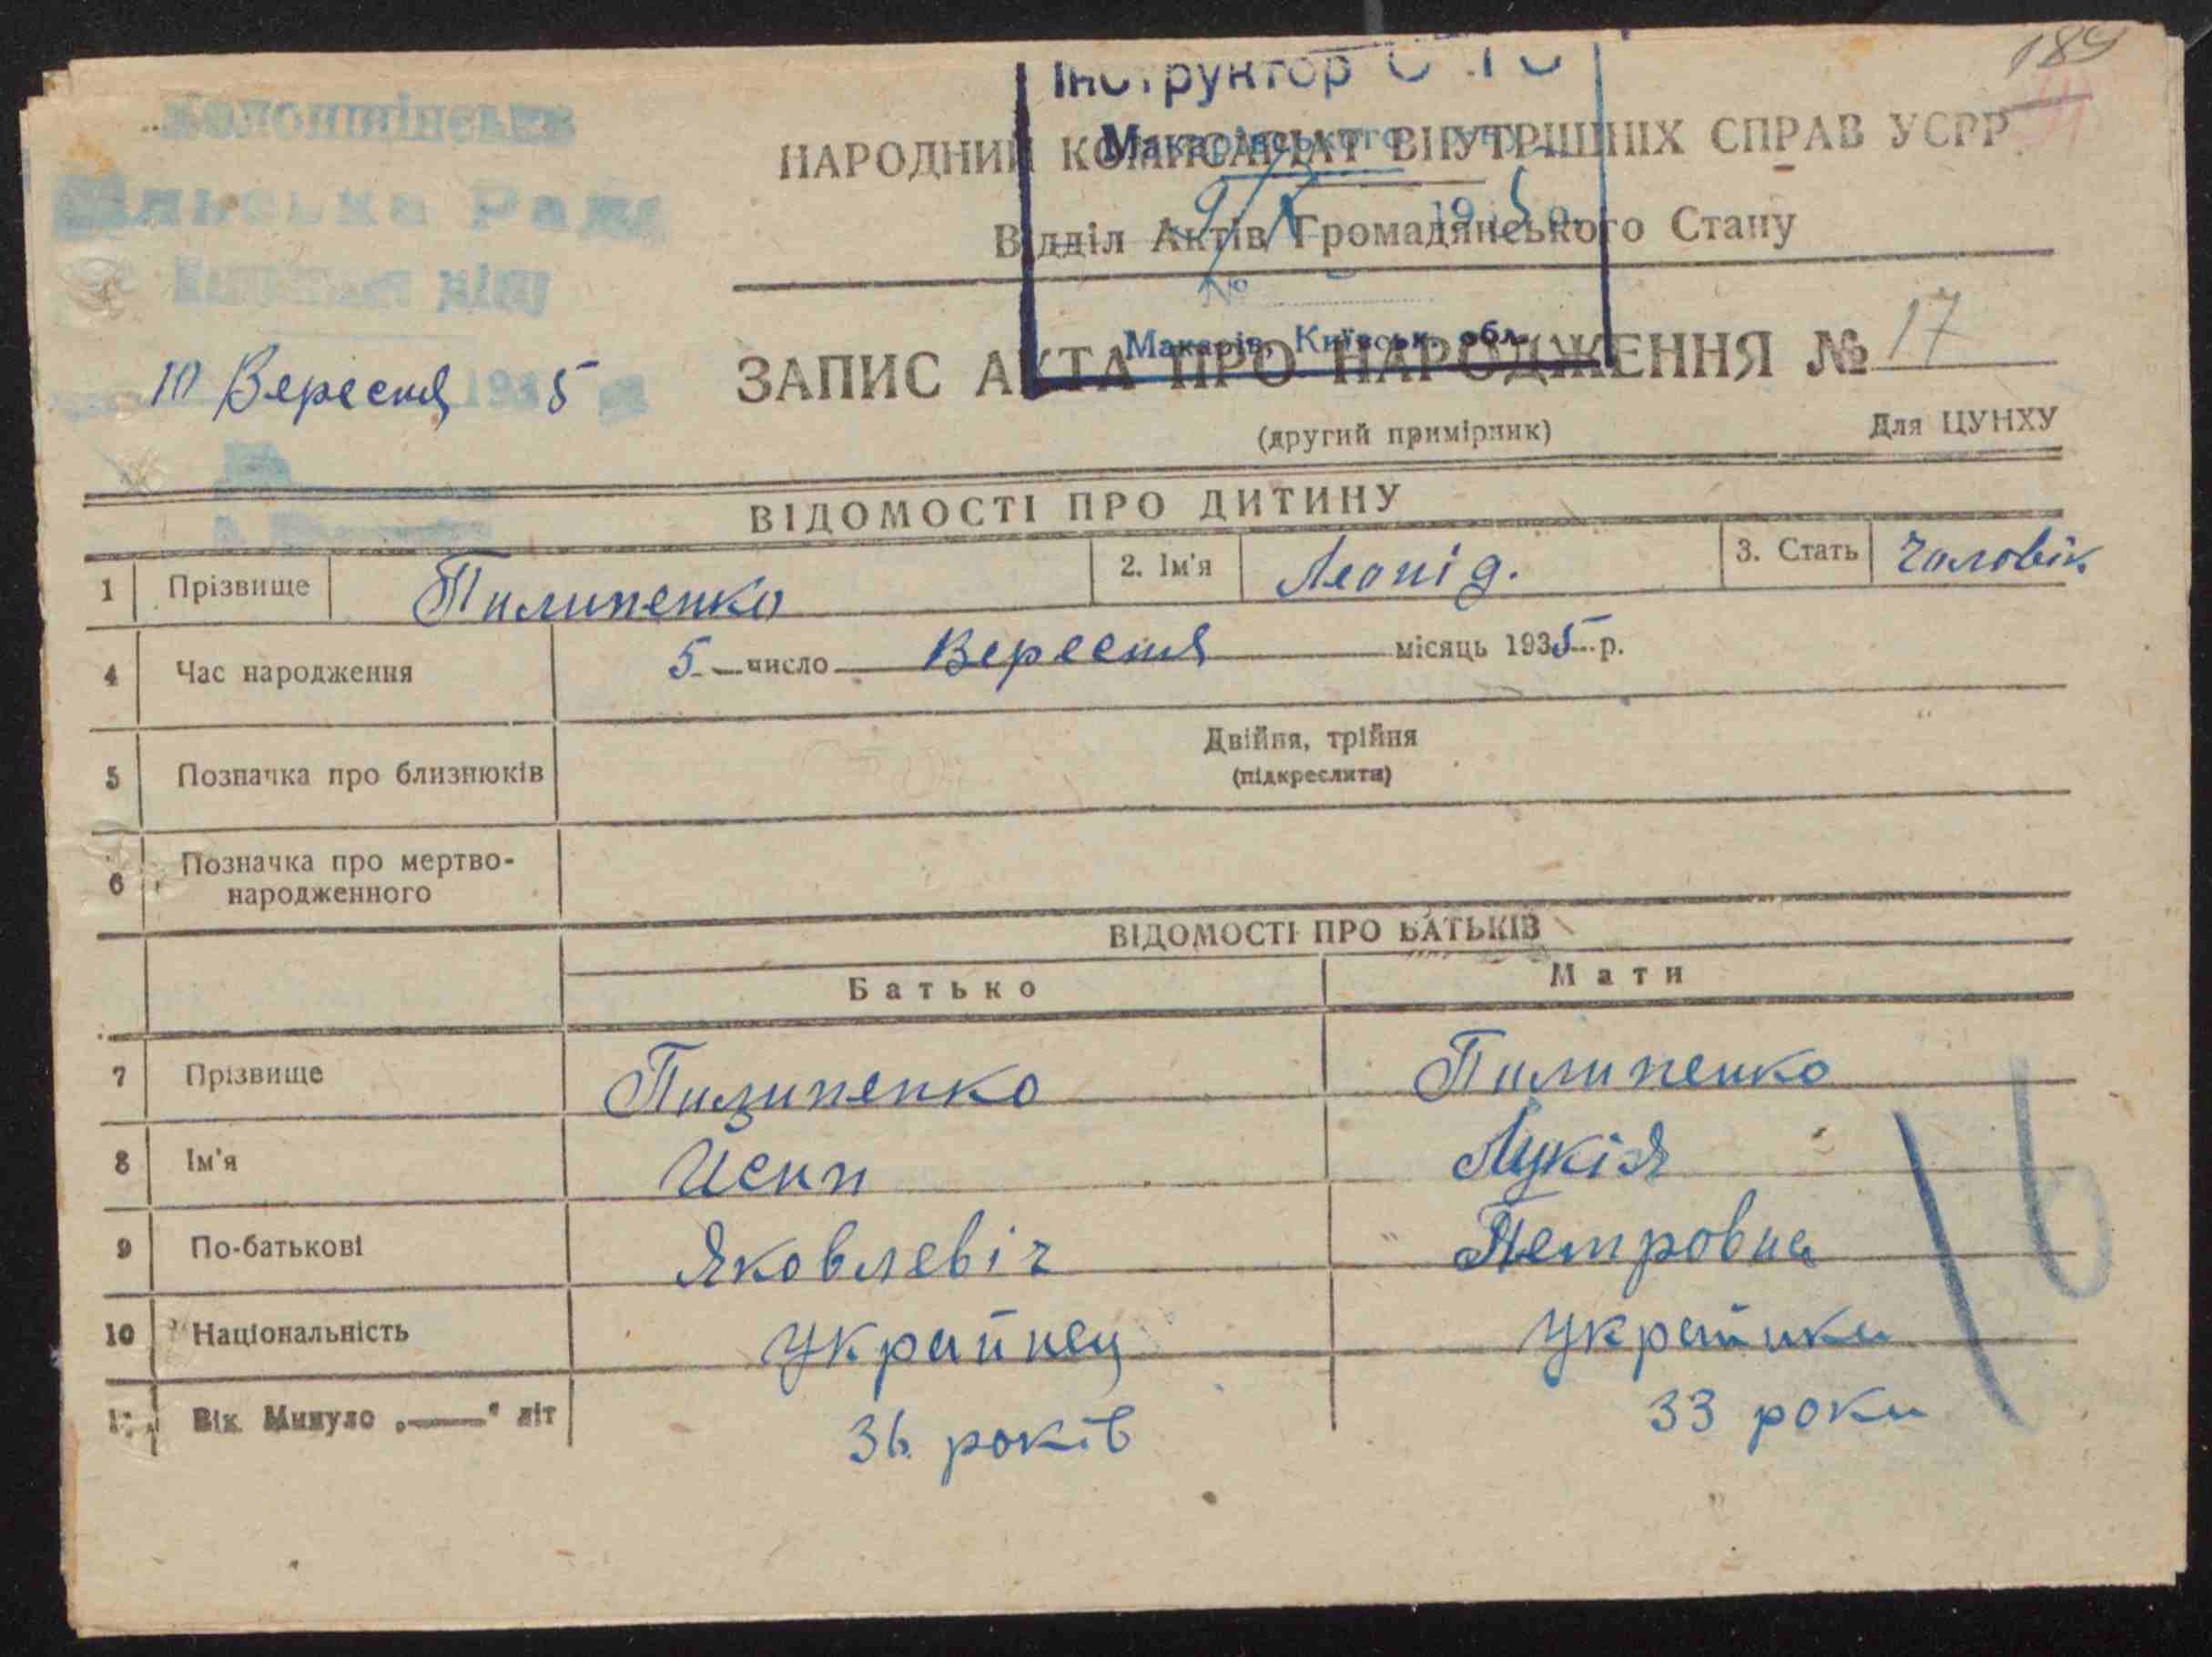 189
Інструктор
Макарівського
Сільська Рада
10 Вересня 1935
НАРОДНИЙ КОМІСАРІАТ ВНУТРІШНІХ СПРАВ УСРР
Відділ Актів Громадянського Стану
№
Макарів, Київськ. обл.
ЗАПИС АКТА ПРО НАРОДЖЕННЯ № 17
(другий примірник)
Для ЦУНХУ
ВІДОМОСТІ ПРО ДИТИНУ
1 Прізвище Пилипенко 2. Ім'я Леонід. 3. Стать Чоловік
4 Час народження 5 число Вересня місяць 1935 р.
5 Позначка про близнюків Двійня, трійня
(підкреслити)
6 Позначка про мертво-
народженного
ВІДОМОСТІ ПРО БАТЬКІВ
Батько Мати
7 Прізвище Пилипенко Пилипенко
8 Ім'я Исип Лукія
9 По-батькові Яковлевіч Петровна
10 Національність Украйнец Украйнка
11 Вік Минуло „—" літ 36 років 33 роки